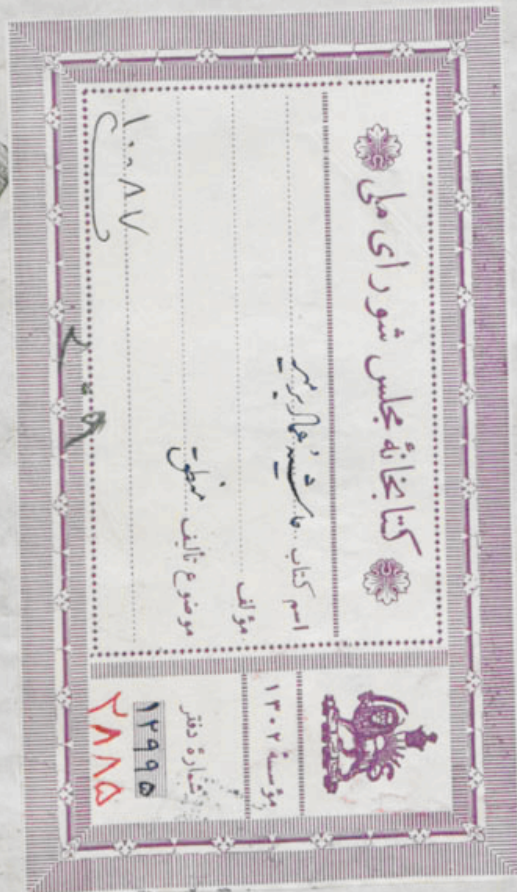 کتابخانهٔ مجلس شورای ملی
اسم کتاب حاشیه عماد بر میر
مؤلف
موضوع تألیف منطق
۱۰۰۸۷
مؤسسهٔ ۱۳۰۲
شمارهٔ دفتر
۱۲۹۹۵
۲۸۸۵